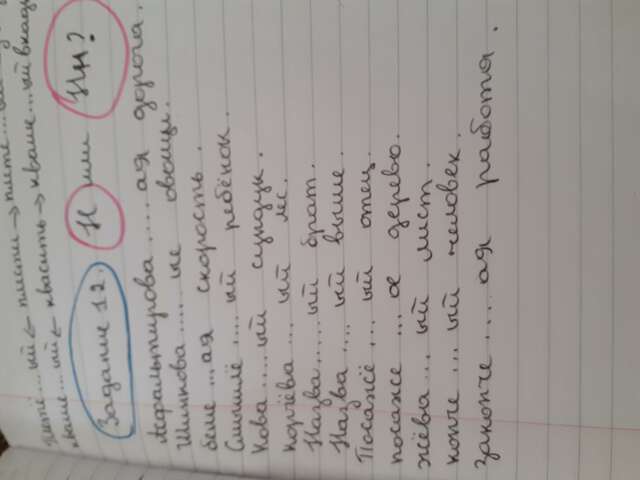 плете...ый ← плести → плете...
кваше...ый ← квасить → кваше...ый
Задание 12. Н или НН?
Асфальтирова.....ая дорога.
Шинкова.....ые овощи.
беше...ая скорость.
Смышлё....ый ребёнок.
Кова....ый сундук.
корчёва...ый лес.
Назва.....ый брат.
Назва....ый выше.
Посажё...ый отец.
посаже...ое дерево.
жёва...ый лист.
конче...ый человек.
законче....ая работа.